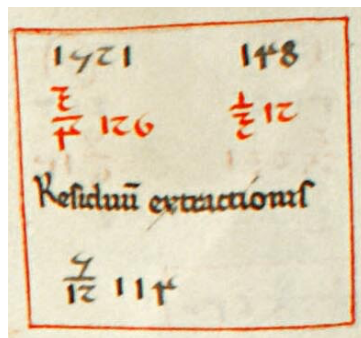 1521 148
3/4 126 1/3 12
Residuū extractionis
5/12 114